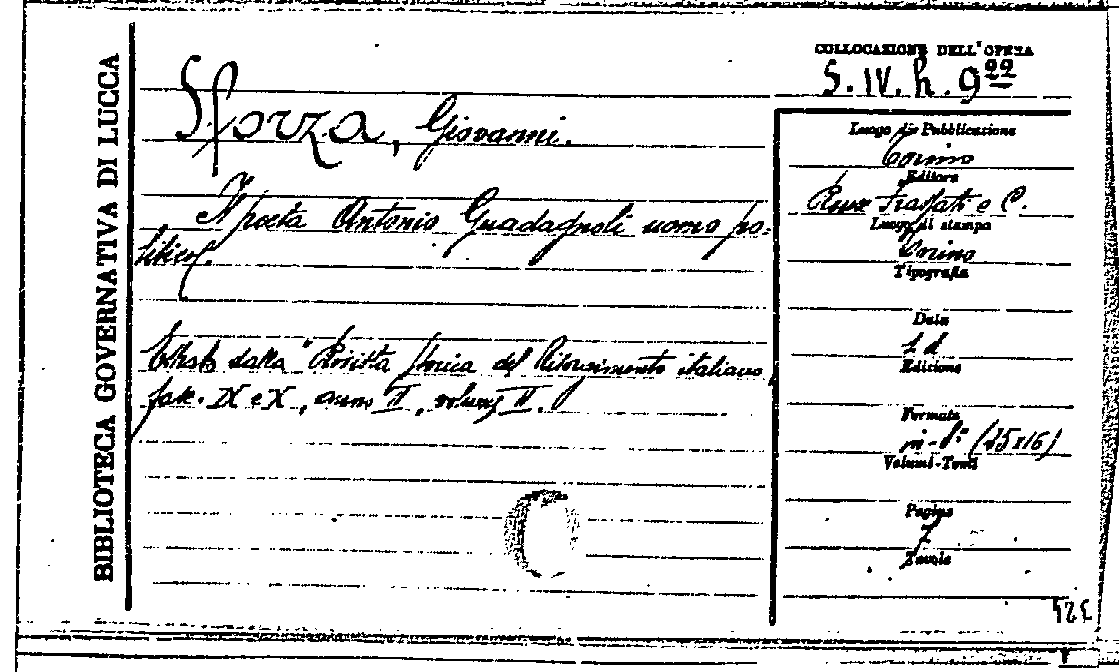 BIBLIOTECA GOVERNATIVA DI LUCCA
Sforza, Giovanni.
Il poeta Antonio Guadagnoli uomo po-
litico.
Estratto dalla "Rivista Storica del Risorgimento italiano,
fasc. IX e X, anno II, volume II.
COLLOCAZIONE DELL'OPERA
S. IV. h. 9²²
Luogo di Pubblicazione
Torino
Editore
Roux Frassati e C.
Luogo di stampa
Torino
Tipografia
Data
s. d.
Edizione
Formato
in-8° (25x16)
Volumi-Tomi
Pagine
7
Tavole